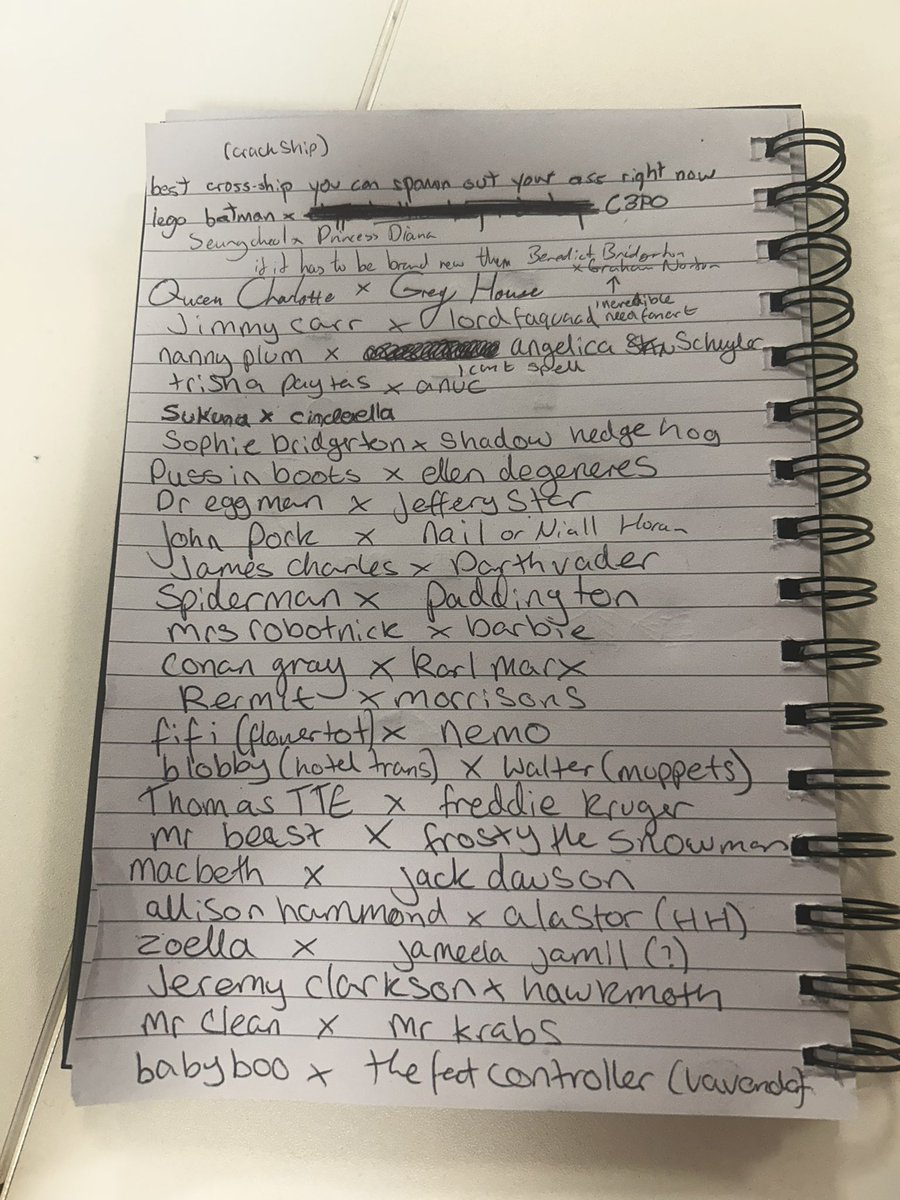 (crackship)
best cross-ship you can spawn out your ass right now
lego batman x C3PO
Seungcheol x Princess Diana
if it has to be brand new then Benedict Bridgerton
x Graham Norton
Queen Charlotte x Greg House
↑ incredible
need fanart
Jimmy carr x lord faquad
nanny plum x angelica Schuyler
I cant spell
trisha paytas x
Sukuna x cinderella
Sophie bridgerton x shadow hedgehog
Puss in boots x ellen degeneres
Dr eggman x Jeffery Star
John Pork x Nail or Niall Horan
James Charles x Darth vader
Spiderman x Paddington
mrs robotnick x barbie
Conan gray x Karl marx
Kermit x morrisons
fifi (flowertot) x nemo
blobby (hotel trans) x Walter (muppets)
Thomas TTE x freddie kruger
mr beast x frosty the snowman
macbeth x jack dawson
allison hammond x alastor (HH)
zoella x jameela jamil (?)
Jeremy clarkson x hawkmoth
Mr Clean x Mr krabs
babyboo x the fect controller